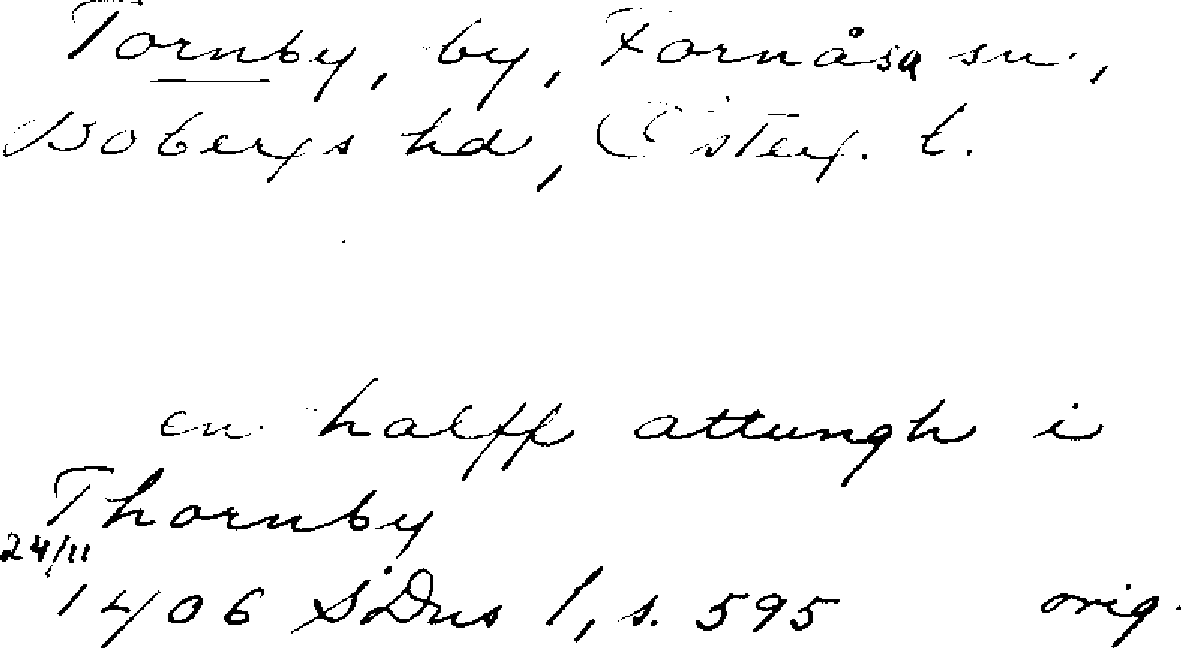 Tornby, by, Fornåsa sn.,
Bobergs hd, Österg. l.
en halff attungh i
Thornby
24/11
1406 SDns 1, s. 595 orig.